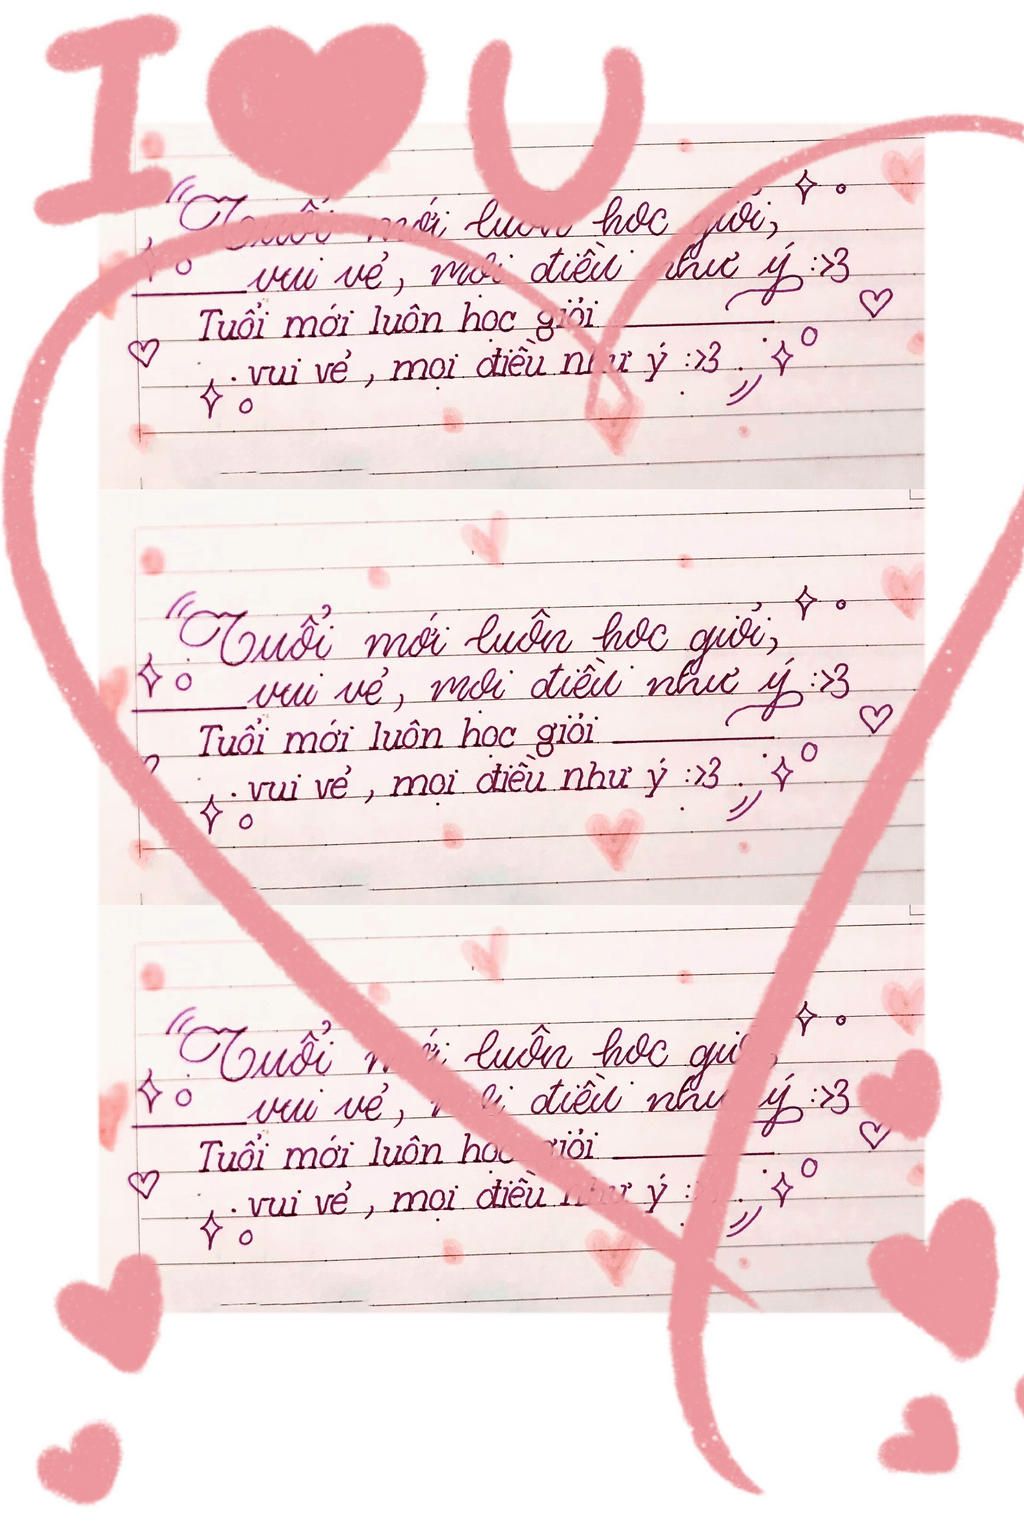 I ♥ U
Tuổi mới luôn học giỏi,
vui vẻ, mọi điều như ý :>3
Tuổi mới luôn học giỏi
vui vẻ, mọi điều như ý :>3
"Tuổi mới luôn học giỏi,
vui vẻ, mọi điều như ý :>3
Tuổi mới luôn học giỏi
vui vẻ, mọi điều như ý :>3
"Tuổi mới luôn học giỏi,
vui vẻ, mọi điều như ý :>3
Tuổi mới luôn học giỏi
vui vẻ, mọi điều như ý